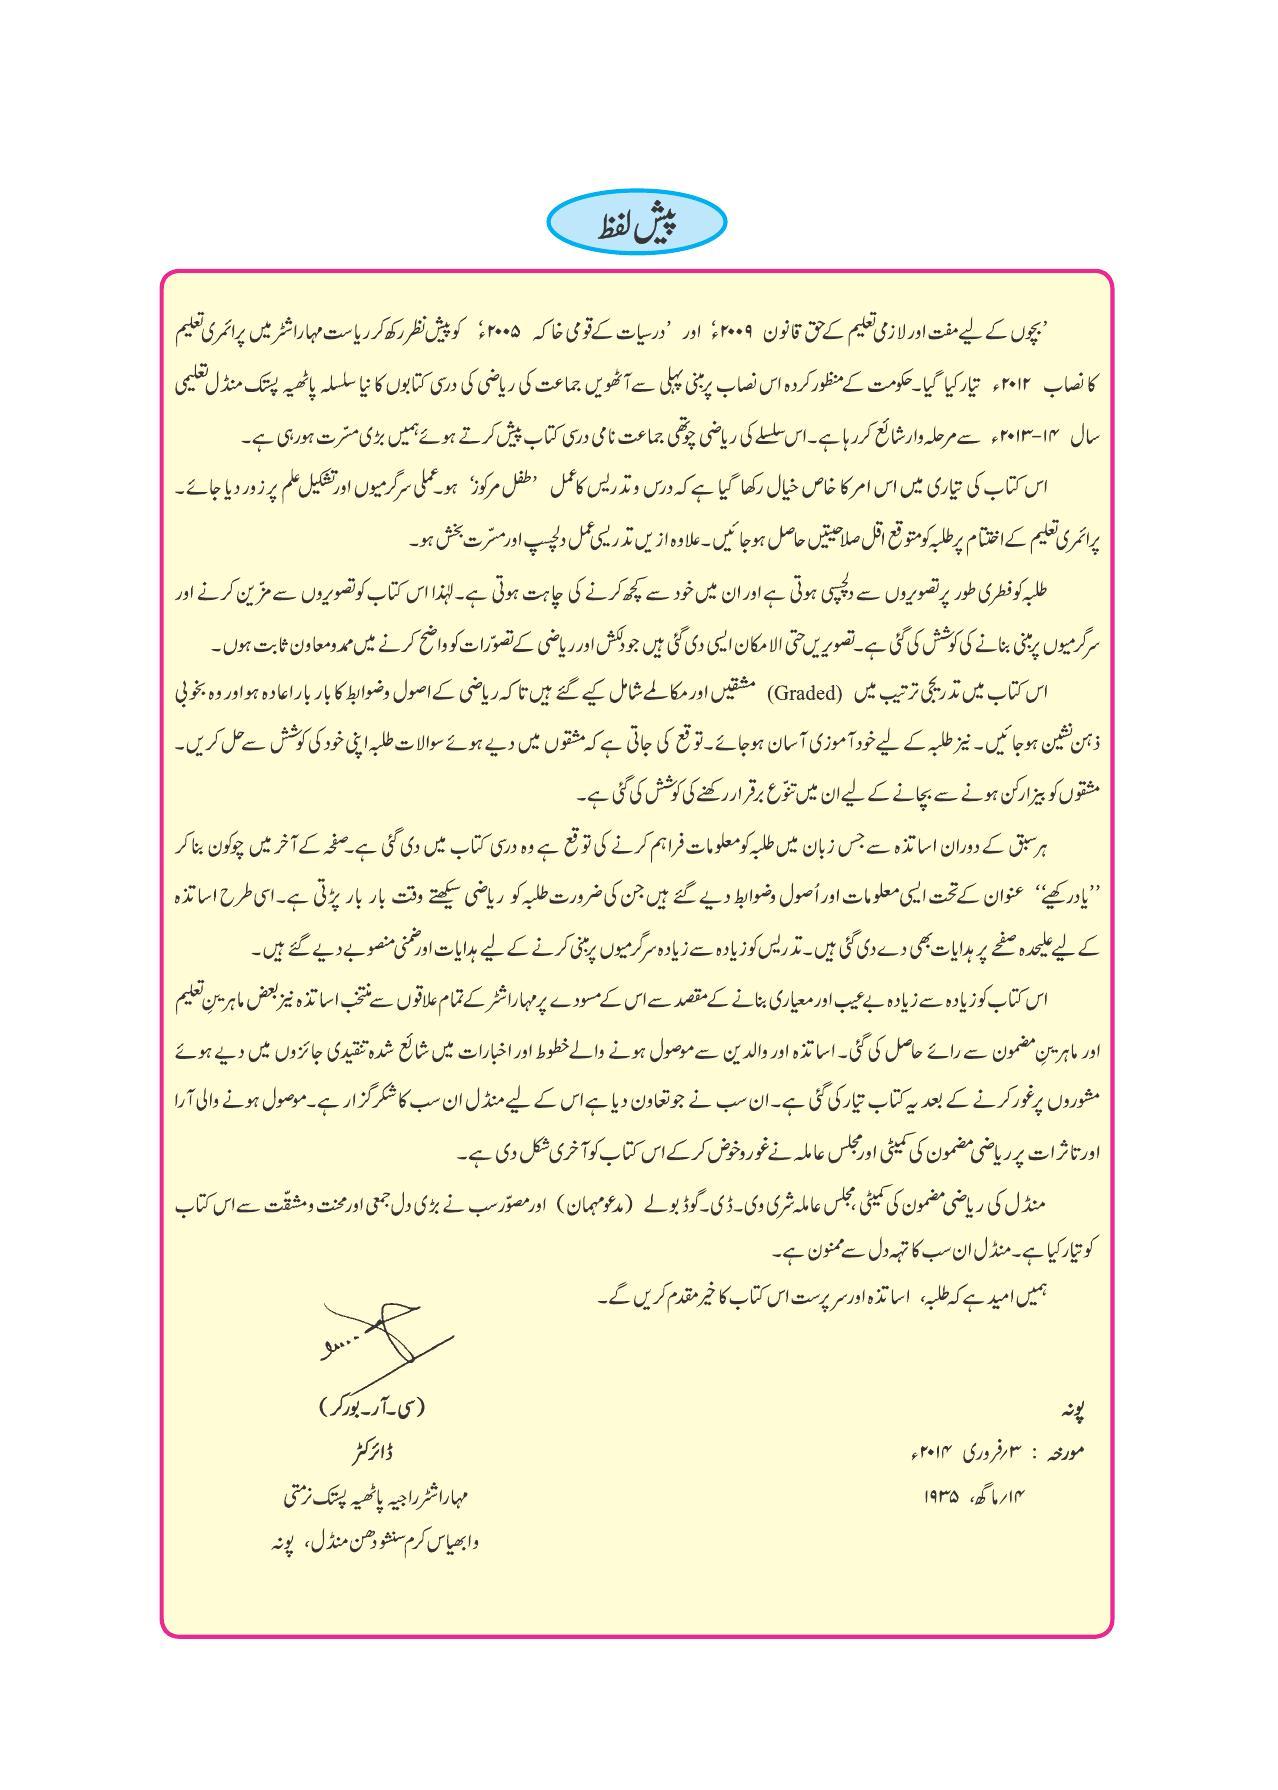 پیش لفظ
’بچوں کے لیے مفت اور لازمی تعلیم کے حق قانون ۲۰۰۹ء‘ اور ’درسیات کے قومی خاکہ ۲۰۰۵ء‘ کو پیش نظر رکھ کر ریاست مہاراشٹر میں پرائمری تعلیم
کا نصاب ۲۰۱۲ء تیار کیا گیا۔ حکومت کے منظور کردہ اس نصاب پر مبنی پہلی سے آٹھویں جماعت کی ریاضی کی درسی کتابوں کا نیا سلسلہ پاٹھیہ پستک منڈل تعلیمی
سال ۱۴-۲۰۱۳ء سے مرحلہ وار شائع کر رہا ہے۔ اس سلسلے کی ریاضی چوتھی جماعت نامی درسی کتاب پیش کرتے ہوئے ہمیں بڑی مسرّت ہو رہی ہے۔
اس کتاب کی تیاری میں اس امر کا خاص خیال رکھا گیا ہے کہ درس و تدریس کا عمل ’طفل مرکوز‘ ہو۔ عملی سرگرمیوں اور تشکیل علم پر زور دیا جائے۔
پرائمری تعلیم کے اختتام پر طلبہ کو متوقع اقل صلاحیتیں حاصل ہو جائیں۔ علاوہ ازیں تدریسی عمل دلچسپ اور مسرّت بخش ہو۔
طلبہ کو فطری طور پر تصویروں سے دلچسپی ہوتی ہے اور ان میں خود سے کچھ کرنے کی چاہت ہوتی ہے۔ لہٰذا اس کتاب کو تصویروں سے مزّین کرنے اور
سرگرمیوں پر مبنی بنانے کی کوشش کی گئی ہے۔ تصویریں حتی الامکان ایسی دی گئی ہیں جو دلکش اور ریاضی کے تصوّرات کو واضح کرنے میں ممد و معاون ثابت ہوں۔
اس کتاب میں تدریجی ترتیب میں (Graded) مشقیں اور مکالمے شامل کیے گئے ہیں تاکہ ریاضی کے اصول و ضوابط کا بار بار اعادہ ہو اور وہ بخوبی
ذہن نشین ہو جائیں۔ نیز طلبہ کے لیے خود آموزی آسان ہو جائے۔ توقع کی جاتی ہے کہ مشقوں میں دیے ہوئے سوالات طلبہ اپنی خود کی کوشش سے حل کریں۔
مشقوں کو بیزار کن ہونے سے بچانے کے لیے ان میں تنوّع برقرار رکھنے کی کوشش کی گئی ہے۔
ہر سبق کے دوران اساتذہ سے جس زبان میں طلبہ کو معلومات فراہم کرنے کی توقع ہے وہ درسی کتاب میں دی گئی ہے۔ صفحہ کے آخر میں چوکون بنا کر
’’یاد رکھیے‘‘ عنوان کے تحت ایسی معلومات اور اُصول و ضوابط دیے گئے ہیں جن کی ضرورت طلبہ کو ریاضی سیکھتے وقت بار بار پڑتی ہے۔ اسی طرح اساتذہ
کے لیے علیحدہ صفحے پر ہدایات بھی دے دی گئی ہیں۔ تدریس کو زیادہ سے زیادہ سرگرمیوں پر مبنی کرنے کے لیے ہدایات اور ضمنی منصوبے دیے گئے ہیں۔
اس کتاب کو زیادہ سے زیادہ بے عیب اور معیاری بنانے کے مقصد سے اس کے مسودے پر مہاراشٹر کے تمام علاقوں سے منتخب اساتذہ نیز بعض ماہرینِ تعلیم
اور ماہرینِ مضمون سے رائے حاصل کی گئی۔ اساتذہ اور والدین سے موصول ہونے والے خطوط اور اخبارات میں شائع شدہ تنقیدی جائزوں میں دیے ہوئے
مشوروں پر غور کرنے کے بعد یہ کتاب تیار کی گئی ہے۔ ان سب نے جو تعاون دیا ہے اس کے لیے منڈل ان سب کا شکر گزار ہے۔ موصول ہونے والی آرا
اور تاثرات پر ریاضی مضمون کی کمیٹی اور مجلس عاملہ نے غور و خوض کر کے اس کتاب کو آخری شکل دی ہے۔
منڈل کی ریاضی مضمون کی کمیٹی، مجلس عاملہ شری وی۔ ڈی۔ گوڈ بولے (مدعو مہمان) اور مصوّر سب نے بڑی دل جمعی اور محنت و مشقّت سے اس کتاب
کو تیار کیا ہے۔ منڈل ان سب کا تہہ دل سے ممنون ہے۔
ہمیں امید ہے کہ طلبہ، اساتذہ اور سرپرست اس کتاب کا خیر مقدم کریں گے۔
(سی۔ آر۔ بورکر)
پونہ
ڈائرکٹر
مورخہ : ۳/فروری ۲۰۱۴ء
مہاراشٹر راجیہ پاٹھیہ پستک نرمتی
۱۴/ماگھ، ۱۹۳۵
وابھیاس کرم سنشودھن منڈل، پونہ